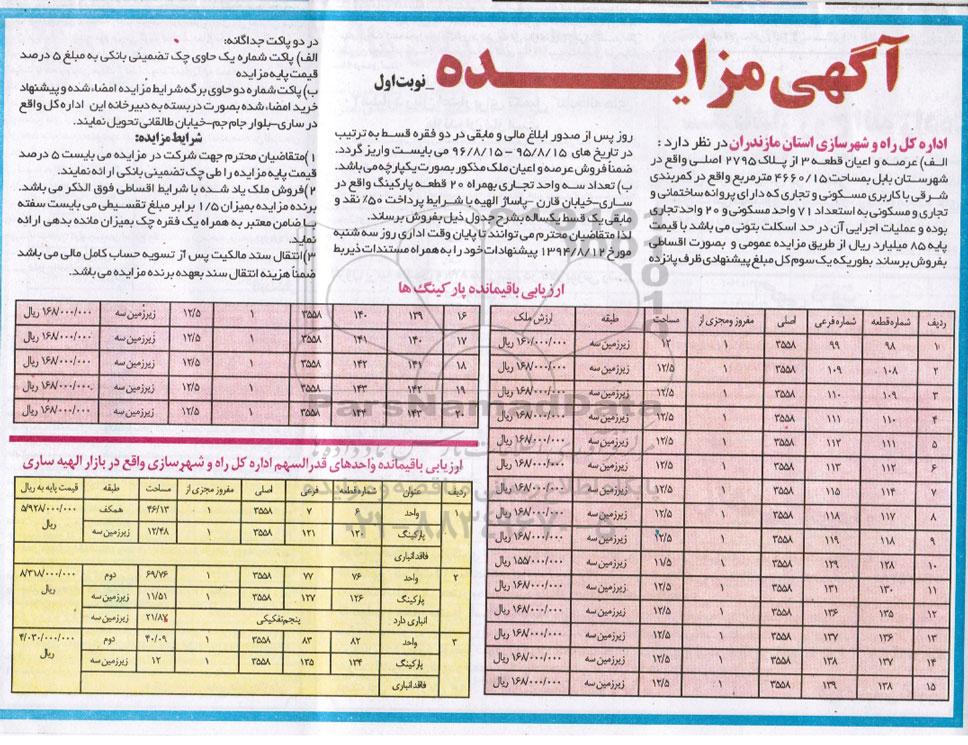 آگهی مزایده _نوبت اول
اداره کل راه و شهرسازی استان مازندران در نظر دارد :
الف) عرصه و اعیان قطعه ۳ از پلاک ۲۷۹۵ اصلی واقع در
شهرستان بابل بمساحت ۴۶۶۰/۱۵ مترمربع واقع در کمربندی
شرقی با کاربری مسکونی و تجاری که دارای پروانه ساختمانی و
تجاری و مسکونی به استعداد ۷۱ واحد مسکونی و ۲۰ واحد تجاری
بوده و عملیات اجرایی آن در حد اسکلت بتونی می باشد با قیمت
پایه ۸۵ میلیارد ریال از طریق مزایده عمومی و بصورت اقساطی
بفروش برساند بطوریکه یک سوم کل مبلغ پیشنهادی ظرف پانزده
روز پس از صدور ابلاغ مالی و مابقی در دو فقره قسط به ترتیب
در تاریخ های ۹۵/۸/۱۵ - ۹۶/۸/۱۵ می بایست واریز گردد.
ضمناً فروش عرصه و اعیان ملک مذکور بصورت یکپارچه می باشد.
ب) تعداد سه واحد تجاری بهمراه ۲۰ قطعه پارکینگ واقع در
ساری-خیابان قارن -پاساژ الهیه با شرایط پرداخت ۵۰٪ نقد و
مابقی یک قسط یکساله بشرح جدول ذیل بفروش برساند.
لذا متقاضیان محترم می توانند تا پایان وقت اداری روز سه شنبه
مورخ ۱۳۹۴/۸/۱۲ پیشنهادات خود را به همراه مستندات ذیربط
در دو پاکت جداگانه:
الف) پاکت شماره یک حاوی چک تضمینی بانکی به مبلغ ۵ درصد
قیمت پایه مزایده
ب) پاکت شماره دو حاوی برگه شرایط مزایده امضاء شده و پیشنهاد
خرید امضاء شده بصورت دربسته به دبیرخانه این اداره کل واقع
در ساری-بلوار جام جم-خیابان طالقانی تحویل نمایند.
شرایط مزایده:
۱)متقاضیان محترم جهت شرکت در مزایده می بایست ۵ درصد
قیمت پایه مزایده را طی چک تضمینی بانکی ارائه نمایند.
۲)فروش ملک یاد شده با شرایط اقساطی فوق الذکر می باشد.
برنده مزایده بمیزان ۱/۵ برابر مبلغ تقسیطی می بایست سفته
با ضامن معتبر به همراه یک فقره چک بمیزان مانده بدهی ارائه
نماید.
۳)انتقال سند مالکیت پس از تسویه حساب کامل مالی می باشد
ضمناً هزینه انتقال سند بعهده برنده مزایده می باشد.
ارزیابی باقیمانده پارکینگ ها
ردیف شماره قطعه شماره فرعی اصلی مفروز و مجزی از مساحت طبقه ارزش ملک
۱ ۹۸ ۹۹ ۳۵۵۸ ۱ ۱۲ زیرزمین سه ۱۶۰/۰۰۰/۰۰۰ ریال
۲ ۱۰۸ ۱۰۹ ۳۵۵۸ ۱ ۱۲/۵ زیرزمین سه ۱۶۸/۰۰۰/۰۰۰ ریال
۳ ۱۰۹ ۱۱۰ ۳۵۵۸ ۱ ۱۲/۵ زیرزمین سه ۱۶۸/۰۰۰/۰۰۰ ریال
۴ ۱۱۰ ۱۱۱ ۳۵۵۸ ۱ ۱۲/۵ زیرزمین سه ۱۶۸/۰۰۰/۰۰۰ ریال
۵ ۱۱۱ ۱۱۲ ۳۵۵۸ ۱ ۱۲/۵ زیرزمین سه ۱۶۸/۰۰۰/۰۰۰ ریال
۶ ۱۱۲ ۱۱۳ ۳۵۵۸ ۱ ۱۲/۵ زیرزمین سه ۱۶۸/۰۰۰/۰۰۰ ریال
۷ ۱۱۴ ۱۱۵ ۳۵۵۸ ۱ ۱۲/۵ زیرزمین سه ۱۶۸/۰۰۰/۰۰۰ ریال
۸ ۱۱۷ ۱۱۸ ۳۵۵۸ ۱ ۱۲/۵ زیرزمین سه ۱۶۸/۰۰۰/۰۰۰ ریال
۹ ۱۱۸ ۱۱۹ ۳۵۵۸ ۱ ۱۲/۵ زیرزمین سه ۱۶۸/۰۰۰/۰۰۰ ریال
۱۰ ۱۲۸ ۱۲۹ ۳۵۵۸ ۱ ۱۱/۵ زیرزمین سه ۱۵۵/۰۰۰/۰۰۰ ریال
۱۱ ۱۳۰ ۱۳۱ ۳۵۵۸ ۱ ۱۲/۵ زیرزمین سه ۱۶۸/۰۰۰/۰۰۰ ریال
۱۲ ۱۳۵ ۱۳۶ ۳۵۵۸ ۱ ۱۲/۵ زیرزمین سه ۱۶۸/۰۰۰/۰۰۰ ریال
۱۳ ۱۳۶ ۱۳۷ ۳۵۵۸ ۱ ۱۲/۵ زیرزمین سه ۱۶۸/۰۰۰/۰۰۰ ریال
۱۴ ۱۳۷ ۱۳۸ ۳۵۵۸ ۱ ۱۲/۵ زیرزمین سه ۱۶۸/۰۰۰/۰۰۰ ریال
۱۵ ۱۳۸ ۱۳۹ ۳۵۵۸ ۱ ۱۲/۵ زیرزمین سه ۱۶۸/۰۰۰/۰۰۰ ریال
۱۶ ۱۳۹ ۱۴۰ ۳۵۵۸ ۱ ۱۲/۵ زیرزمین سه ۱۶۸/۰۰۰/۰۰۰ ریال
۱۷ ۱۴۰ ۱۴۱ ۳۵۵۸ ۱ ۱۲/۵ زیرزمین سه ۱۶۸/۰۰۰/۰۰۰ ریال
۱۸ ۱۴۱ ۱۴۲ ۳۵۵۸ ۱ ۱۲/۵ زیرزمین سه ۱۶۸/۰۰۰/۰۰۰ ریال
۱۹ ۱۴۲ ۱۴۳ ۳۵۵۸ ۱ ۱۲/۵ زیرزمین سه ۱۶۸/۰۰۰/۰۰۰ ریال
۲۰ ۱۴۳ ۱۴۴ ۳۵۵۸ ۱ ۱۲/۵ زیرزمین سه ۱۶۸/۰۰۰/۰۰۰ ریال
ارزیابی باقیمانده واحدهای قدرالسهم اداره کل راه و شهرسازی واقع در بازار الهیه ساری
ردیف عنوان شماره قطعه فرعی اصلی مفروز مجزی از مساحت طبقه قیمت پایه به ریال
۱ واحد ۶ ۷ ۳۵۵۸ ۱ ۴۶/۱۳ همکف ۵/۹۲۸/۰۰۰/۰۰۰ ریال
پارکینگ ۱۲۰ ۱۲۱ ۳۵۵۸ ۱ ۱۲/۴۸ زیرزمین سه
فاقد انباری
۲ واحد ۷۶ ۷۷ ۳۵۵۸ ۱ ۶۹/۷۶ دوم ۸/۳۱۸/۰۰۰/۰۰۰ ریال
پارکینگ ۱۲۶ ۱۲۷ ۳۵۵۸ ۱ ۱۱/۵۱ زیرزمین سه
انباری دارد پنجم تفکیکی ۲۱/۸۷ زیرزمین سه
۳ واحد ۸۲ ۸۳ ۳۵۵۸ ۱ ۴۰/۰۹ دوم ۴/۰۳۰/۰۰۰/۰۰۰ ریال
پارکینگ ۱۳۴ ۱۳۵ ۳۵۵۸ ۱ ۱۲ زیرزمین سه
فاقد انباری
ParsNamadData
پایگاه اطلاع رسانی مناقصه و مزایده